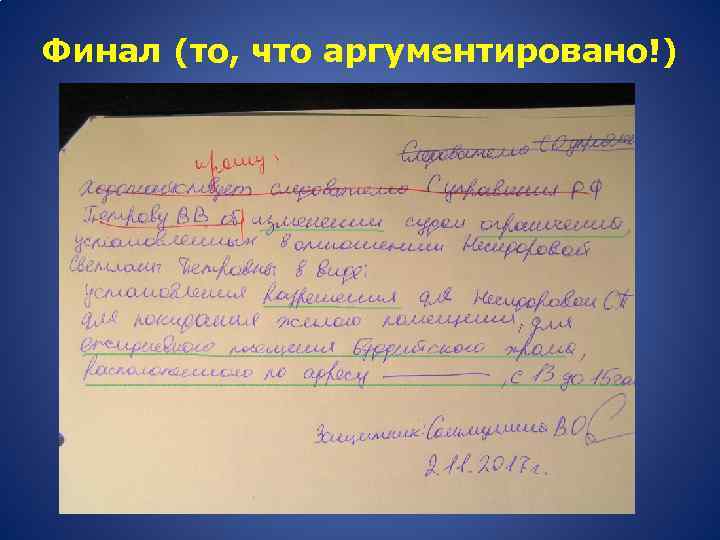 Финал (то, что аргументировано!)
прошу:
Следователю СО управле
Ходатайствует следователю С управления РФ
Петрову ВВ об изменении судом ограничений,
установленных в отношении Несидоровой
Светланы Петровны в виде:
установления разрешения для Несидоровой СП
для покидания жилого помещения, для
ежедневного посещения Буддийского храма,
расположенного по адресу ————, с 13 до 15 ча
Защитник: В.О.
2.11.2017г.